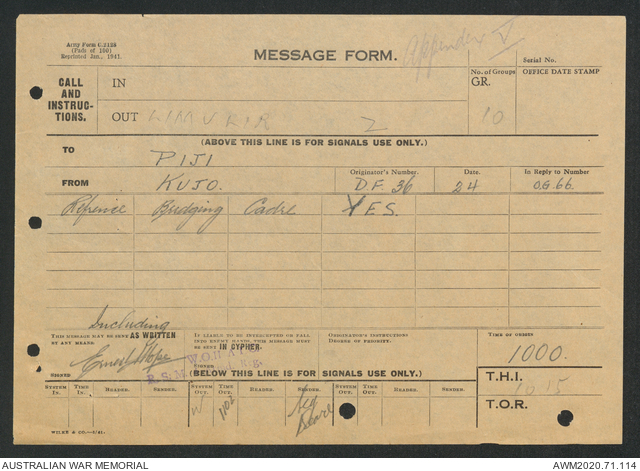 Army Form C.2128
(Pads of 100)
Reprinted Jan., 1941.
MESSAGE FORM. Appendix V
Serial No.
CALL AND INSTRUC-TIONS.
IN
No. of Groups GR.
OFFICE DATE STAMP
OUT 2 10
(ABOVE THIS LINE IS FOR SIGNALS USE ONLY.)
TO PIJI
FROM KUJO. Originator's Number. D.F. 36 Date. 24 In Reply to Number O.G. 66.
Refrence Bridging Cadre YES.
Including
THIS MESSAGE MAY BE SENT AS WRITTEN BY ANY MEANS.
IS LIABLE TO BE INTERCEPTED OR FALL INTO ENEMY HANDS, THIS MESSAGE MUST BE SENT IN CYPHER.
ORIGINATOR'S INSTRUCTIONS
DEGREE OF PRIORITY.
TIME OF ORIGIN
1000.
SIGNED
SIGNED
(BELOW THIS LINE IS FOR SIGNALS USE ONLY.)
T.H.I. 1015
SYSTEM IN. TIME IN. READER. SENDER. SYSTEM OUT TIME OUT. READER. SENDER. SYSTEM OUT TIME OUT. READER. SENDER.
T.O.R.
WILKE & CO.—5/41.
AUSTRALIAN WAR MEMORIAL
AWM2020.71.114